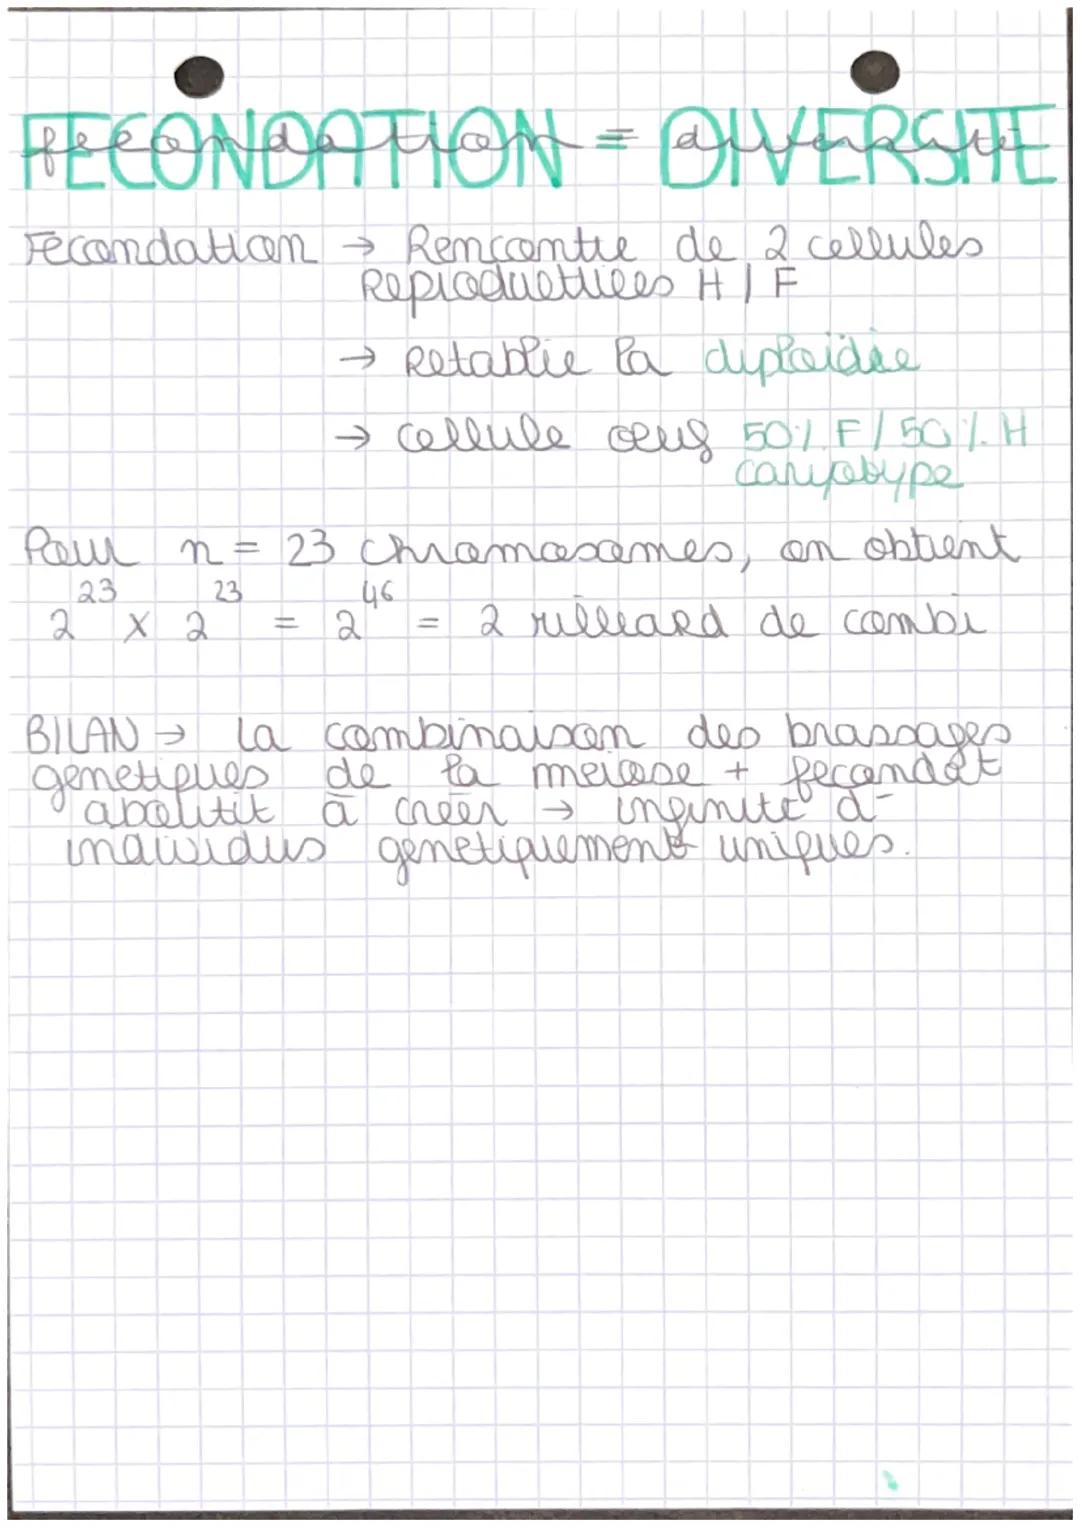 FECONDATION = DIVERSITE
Fecondation → Rencontre de 2 cellules
Reproductrices H / F
→ Retablie la diploidie
→ cellule oeuf 50% F / 50% H
caryotype
Pour n = 23 chromosomes, on obtient
2²³ x 2²³ = 2⁴⁶ = 2 milliard de combi
BILAN → La combinaison des brassages
genetiques de la meiose + fecondat
aboutit à créer → infinité d-
individus genetiquement uniques.